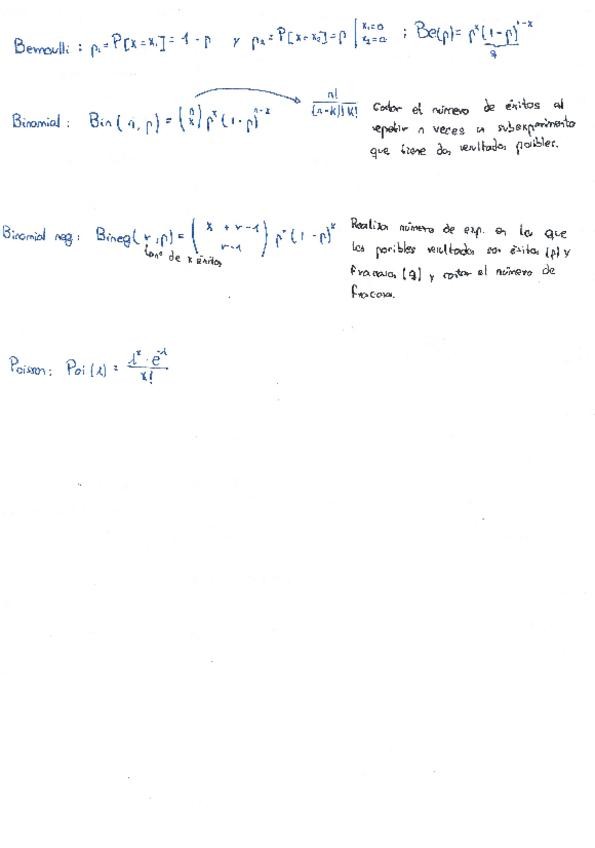 Bernoulli: p₁ = P[x=x₁] = 1-p y p₂ = P[x=x₂] = p | x₁=0 x₂=0 ; Be(p) = pˣ(1-p)¹⁻ˣ
q
Binomial: Bin(n, p) = (n x) pˣ(1-p)ⁿ⁻ˣ n!/(n-k)!k! Contar el número de éxitos al
repetir n veces un subexperimento
que tiene dos resultados posibles.
Binomial neg: Bineg(r, p) = (x+r-1 r-1) pʳ(1-p)ˣ Realizar número de exp. en los que
los posibles resultados son éxitos (p) y
de x éxitos
fracasos (q) y contar el número de
fracasos.
Poisson: Poi(λ) = λˣ · e⁻λ / x!